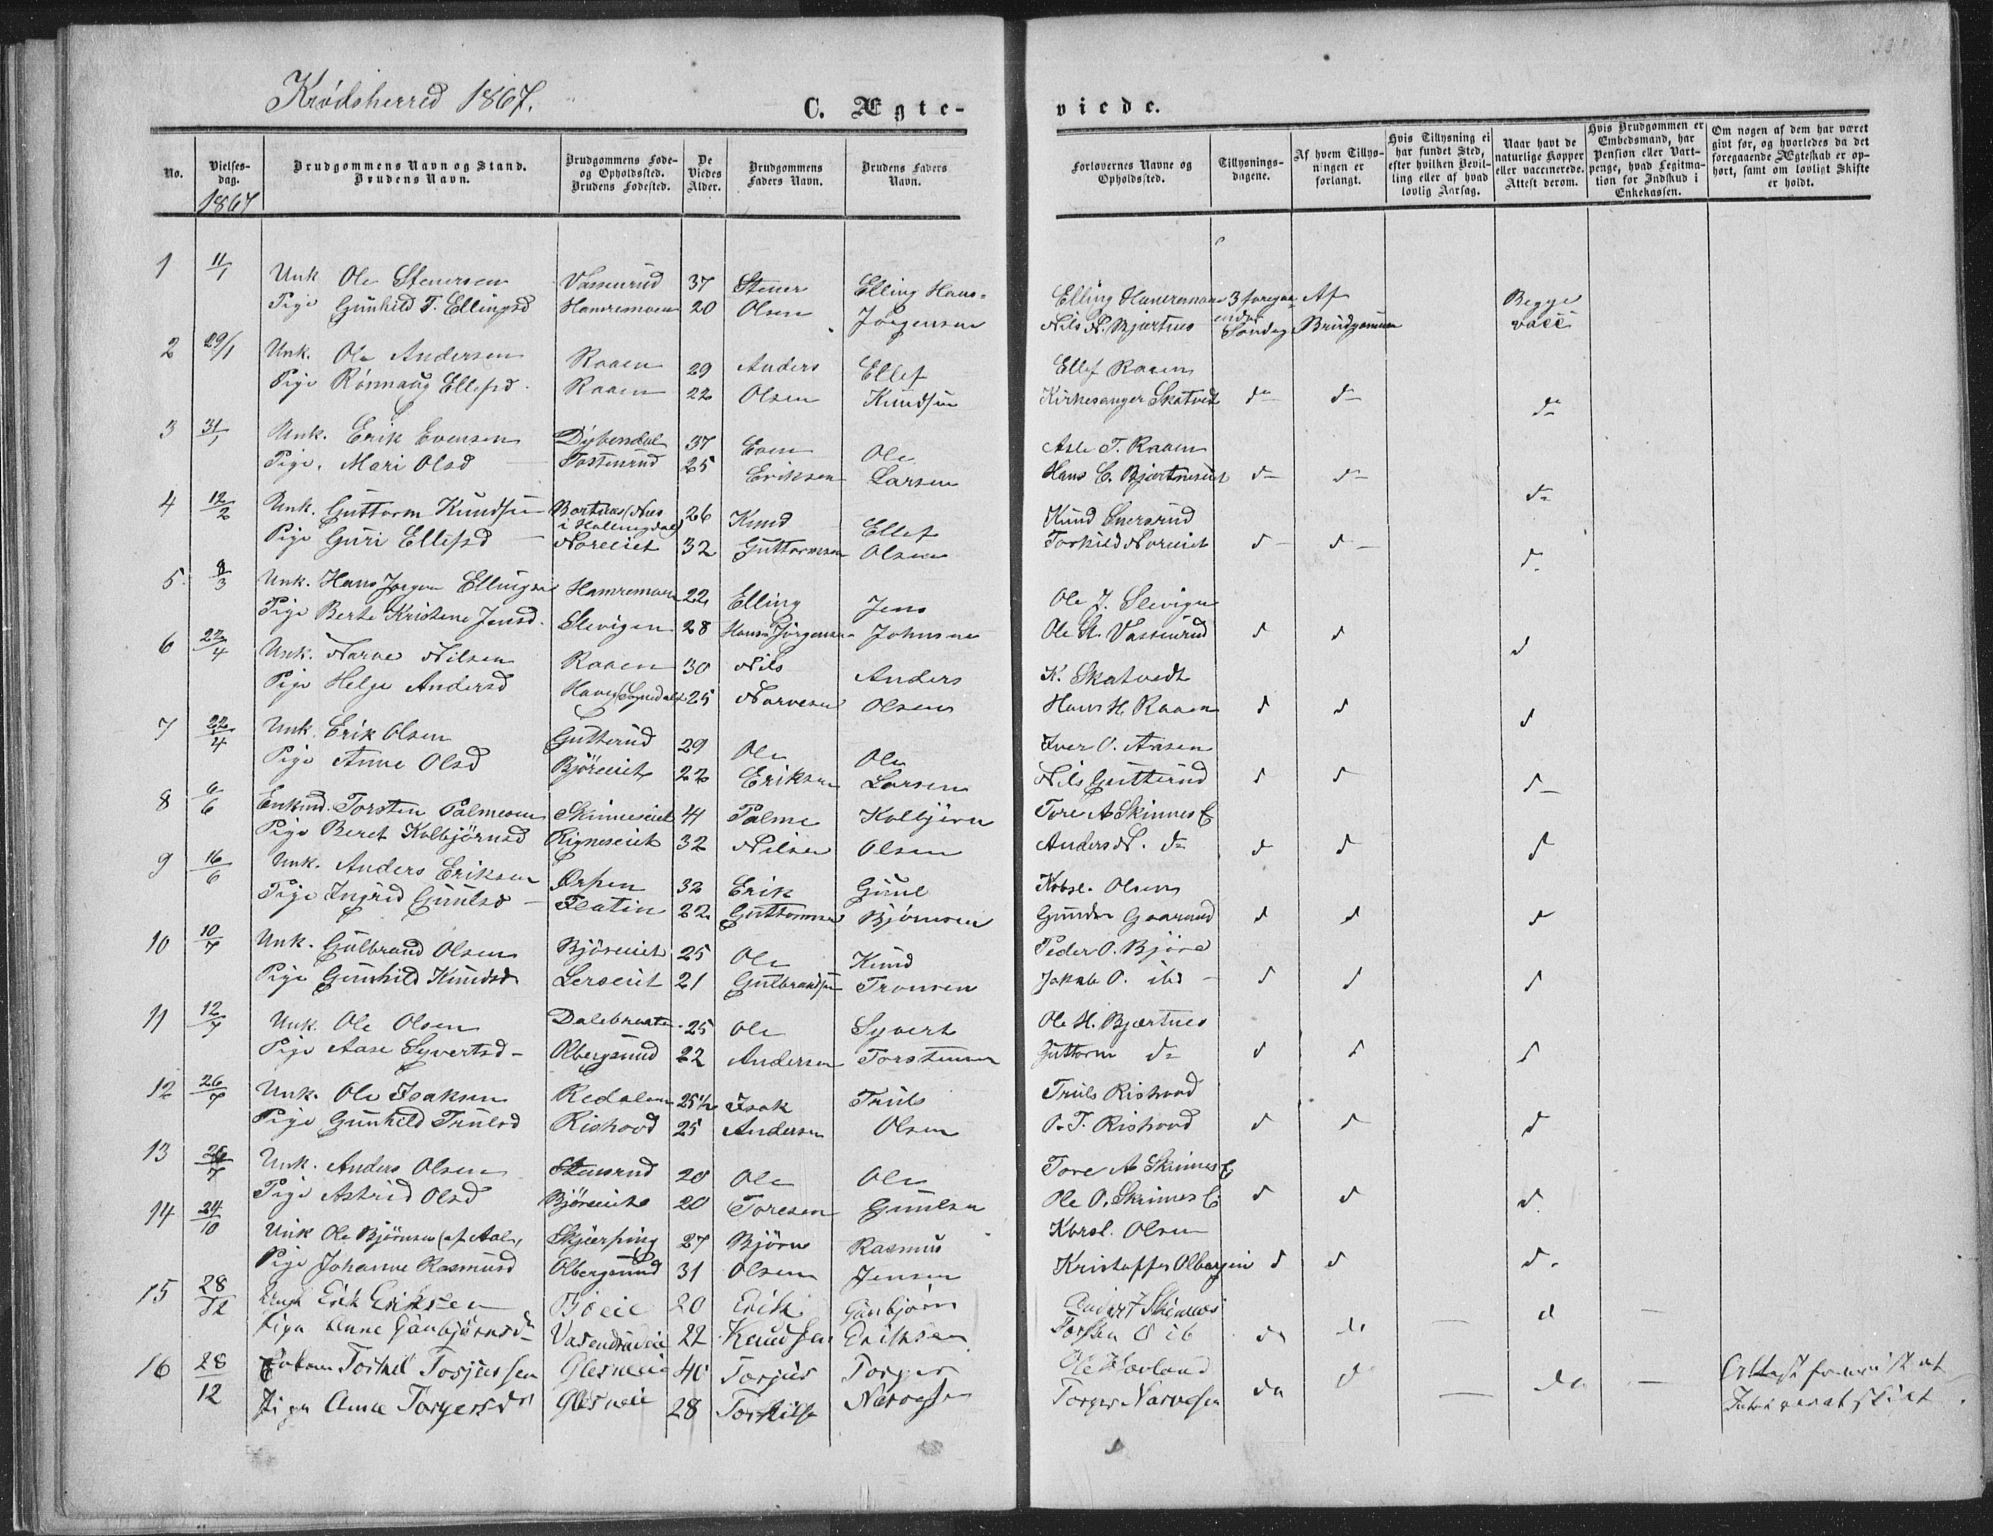 Krødsherred 1867.
C. Ægteviede.
No.
Vielsesdag.
Brudgommens Navn og Stand. Brudens Navn.
Brudgommens Føde- og Opholdssted. Brudens Fødested.
De Viedes Alder.
Brudgommens Faders Navn.
Brudens Faders Navn.
Forlovernes Navne og Opholdssted.
Tillysningsdagene.
Af hvem Tillysningen er forlangt.
Hvis Tillysning ei har fundet Sted, efter hvilken Bevilling eller af hvad lovlig Aarsag.
Naar havt de naturlige Kopper eller vaccinerede. Attest derom.
Hvis Brudgommen er Embedsmand, har Pension eller Vartpenge, hvad Legitimation for Indskud i Enkekassen.
Om nogen af dem har været givt før, og hvorledes da det foregaaende Ægteskab er ophørt, samt om lovligt Skifte er holdt.
1867
1 11/1 Unk Ole Stenersen Vassenrud 37 Stener Elling Hans- Elling Hamremoen 3 foregaa- Af Begge
Pige Gunhild T. Ellingsd Hamremoen 20 Olsen Jørgensen Nils N. Bjertnes ende Søndag Brudgommen vacc
2 29/1 Unk. Ole Andersen Raaen 29 Anders Ellef Ellef Raaen
Pige Rønnaug Ellefsd. Raaen 22 Olsen Knudsen Kirkesanger Skatvedt do d- do
3 31/1 Unk. Erik Evensen Dybendal 37 Even Ole Asle T. Raaen
Pige. Mari Olsd Tostenrud 25 Eriksen Larsen Hans C. Bjertneseiet d- d- d-
4 12/2 Unk. Guttorm Knudsen Bortnes/Nes i Hallingdal 26 Knud Ellef Knud Snersrud
Pige Guri Ellefsd Noreeiet 32 Guttormsen Olsen Torkild Noreeiet d- d- d-
5. 8/3 Unk. Hans Jørgen Ellingsen Hamremoen 22 Elling Jens Ole J. Slevigen
Pige Berte Kristene Jensd. Slevigen 28 Hans Jørgensen Johnsen Ole St. Vassenrud d d d
6 22/4 Unk. Narve Nilsen Raaen 30 Nils Anders K. Skatvedt
Pige Helge Andersd 25 Narvesen Olsen Hans H. Raaen d d d
7 22/4 Unk. Erik Olsen Gutterud 29 Ole Ole Iver O. Aasen
Pige Anne Olsd Bjøreeiet 22 Eriksen Larsen Nils Gutterud d d d-
8 6/6 Enkmd. Torsten Palmesen Skinneseiet 41 Palme Kolbjørn Tore A Skinnes E
Pige Beret Kolbjørnsd Rigneseiet 32 Nilsen Olsen Anders N. do d d d
9 16/6 Unk. Anders Eriksen Ørpen 32 Erik Guul Kbsl. Olsen
Pige Ingrid Guulsd Flatin 22 Guttormsen Bjørnsen Gunder Gaarnud d d d
10 10/7 Unk. Gulbrand Olsen Bjøreeiet 25 Ole Knud Peder O. Bjøre
Pige Gunhild Knudsd Lerseiet 21 Gulbrandsen Tronsen Jakob O. ibd d d d
11 12/7 Unk. Ole Olsen Dalebraaten 25 Ole Syvert Ole H. Bjertnes
Pige Aase Syvertsd- Olbergsund 22 Andersen Torstensen Guttorm do d d d
12 26/7 Unk. Ole Isaksen Redalen 25½ Isak Truls Truls Rishovd
Pige Gunhild Trulsd Rishovd 25 Andersen Olsen O. T. Rishovd d d d
13 26/7 Unk. Anders Olsen Stensrud 28 Ole Ole Tore A Skinnes E
Pige Astrid Olsd Bjøreeiet 20 Toresen Guulsen Ole O. Skrinnes E d d d.
14 24/10 Unk Ole Bjørnsen (af Aal) Skjerping 27 Bjørn Rasmus Kbrsl. Olsen
Pige Johanne Rasmusd Olbergsund 31 Olsen Jensen Kristoffer Olbergsen d d d.
15 28/12 Ungk Erik Eriksen Bjøeie 20 Erik Gunbjørn Skinnes
Pige Anne Gunbjørnsd Vasendrudeie 22 Knudsen Eriksen Torsten O ib do do — d —
16 28/12 Enkem Torkel Torjussen Glesneeie 40 Torjus Torger Ole Hovland
Pige Anne Torgersd Glesneeie 28 Torkilse Narvese Torger Narvesen do d — do —